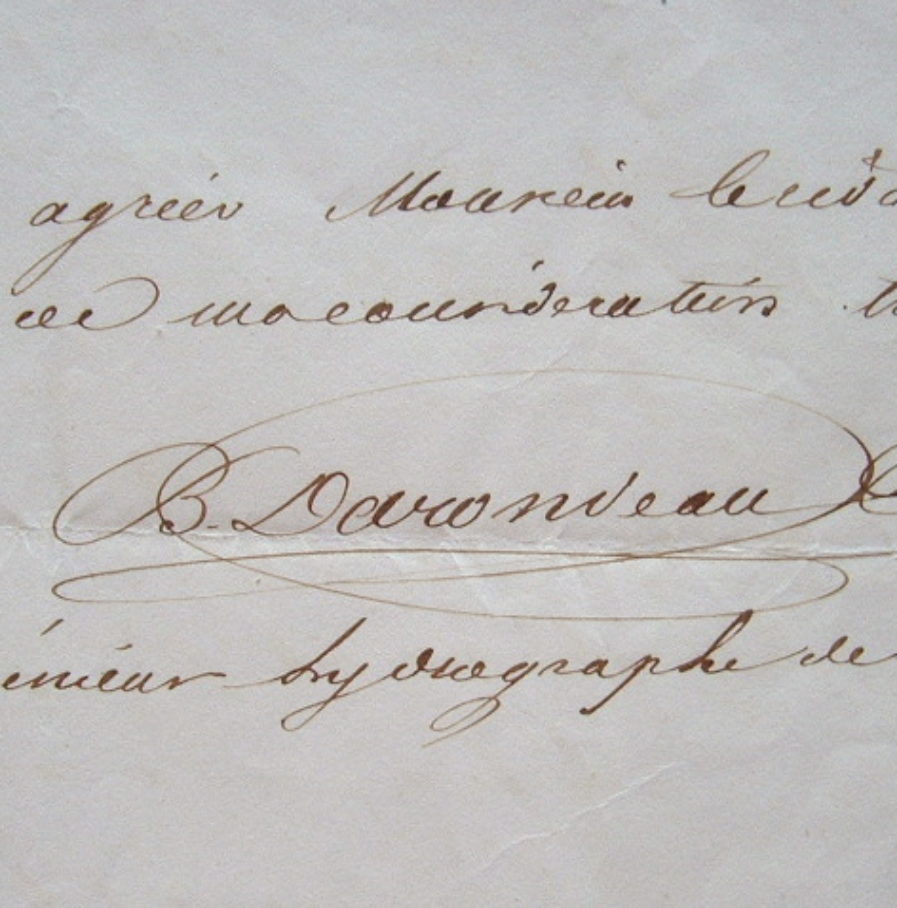 agréer Monsieur le
de ma consideration
B. Darondeau
énieur hydrographe de